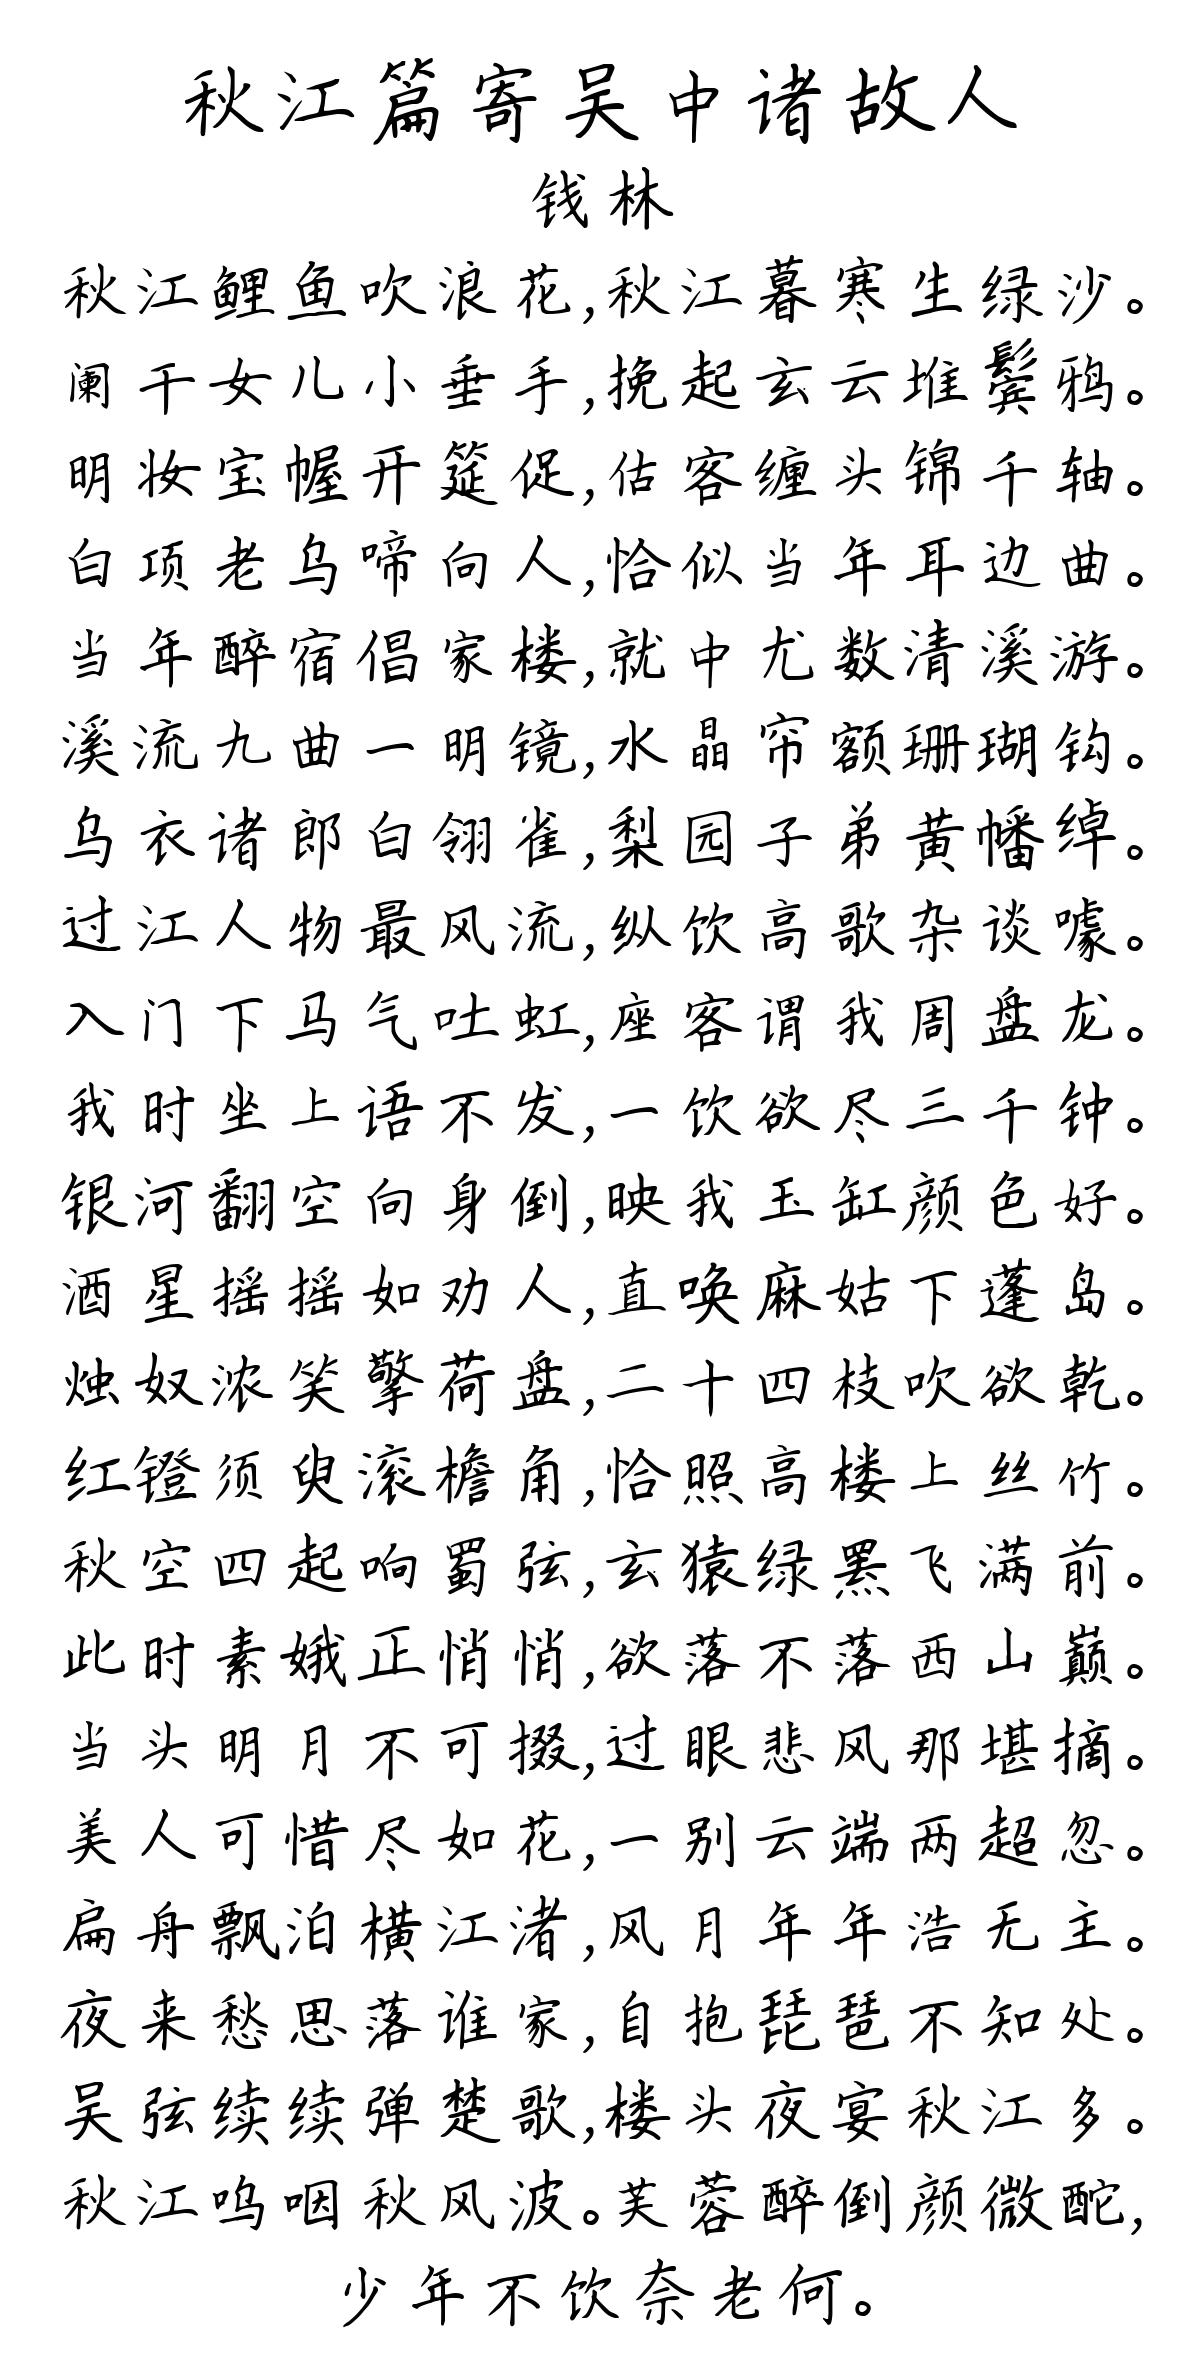 秋江篇寄吴中诸故人
钱林
秋江鲤鱼吹浪花,秋江暮寒生绿沙。
阑干女儿小垂手,挽起玄云堆鬓鸦。
明妆宝幄开筵促,估客缠头锦千轴。
白项老乌啼向人,恰似当年耳边曲。
当年醉宿倡家楼,就中尤数清溪游。
溪流九曲一明镜,水晶帘额珊瑚钩。
乌衣诸郎白翎雀,梨园子弟黄幡绰。
过江人物最风流,纵饮高歌杂谈噱。
入门下马气吐虹,座客谓我周盘龙。
我时坐上语不发,一饮欲尽三千钟。
银河翻空向身倒,映我玉缸颜色好。
酒星摇摇如劝人,直唤麻姑下蓬岛。
烛奴浓笑擎荷盘,二十四枝吹欲乾。
红镫须臾滚檐角,恰照高楼上丝竹。
秋空四起响蜀弦,玄猿绿罴飞满前。
此时素娥正悄悄,欲落不落西山巅。
当头明月不可掇,过眼悲风那堪摘。
美人可惜尽如花,一别云端两超忽。
扁舟飘泊横江渚,风月年年浩无主。
夜来愁思落谁家,自抱琵琶不知处。
吴弦续续弹楚歌,楼头夜宴秋江多。
秋江呜咽秋风波。芙蓉醉倒颜微酡,
少年不饮奈老何。